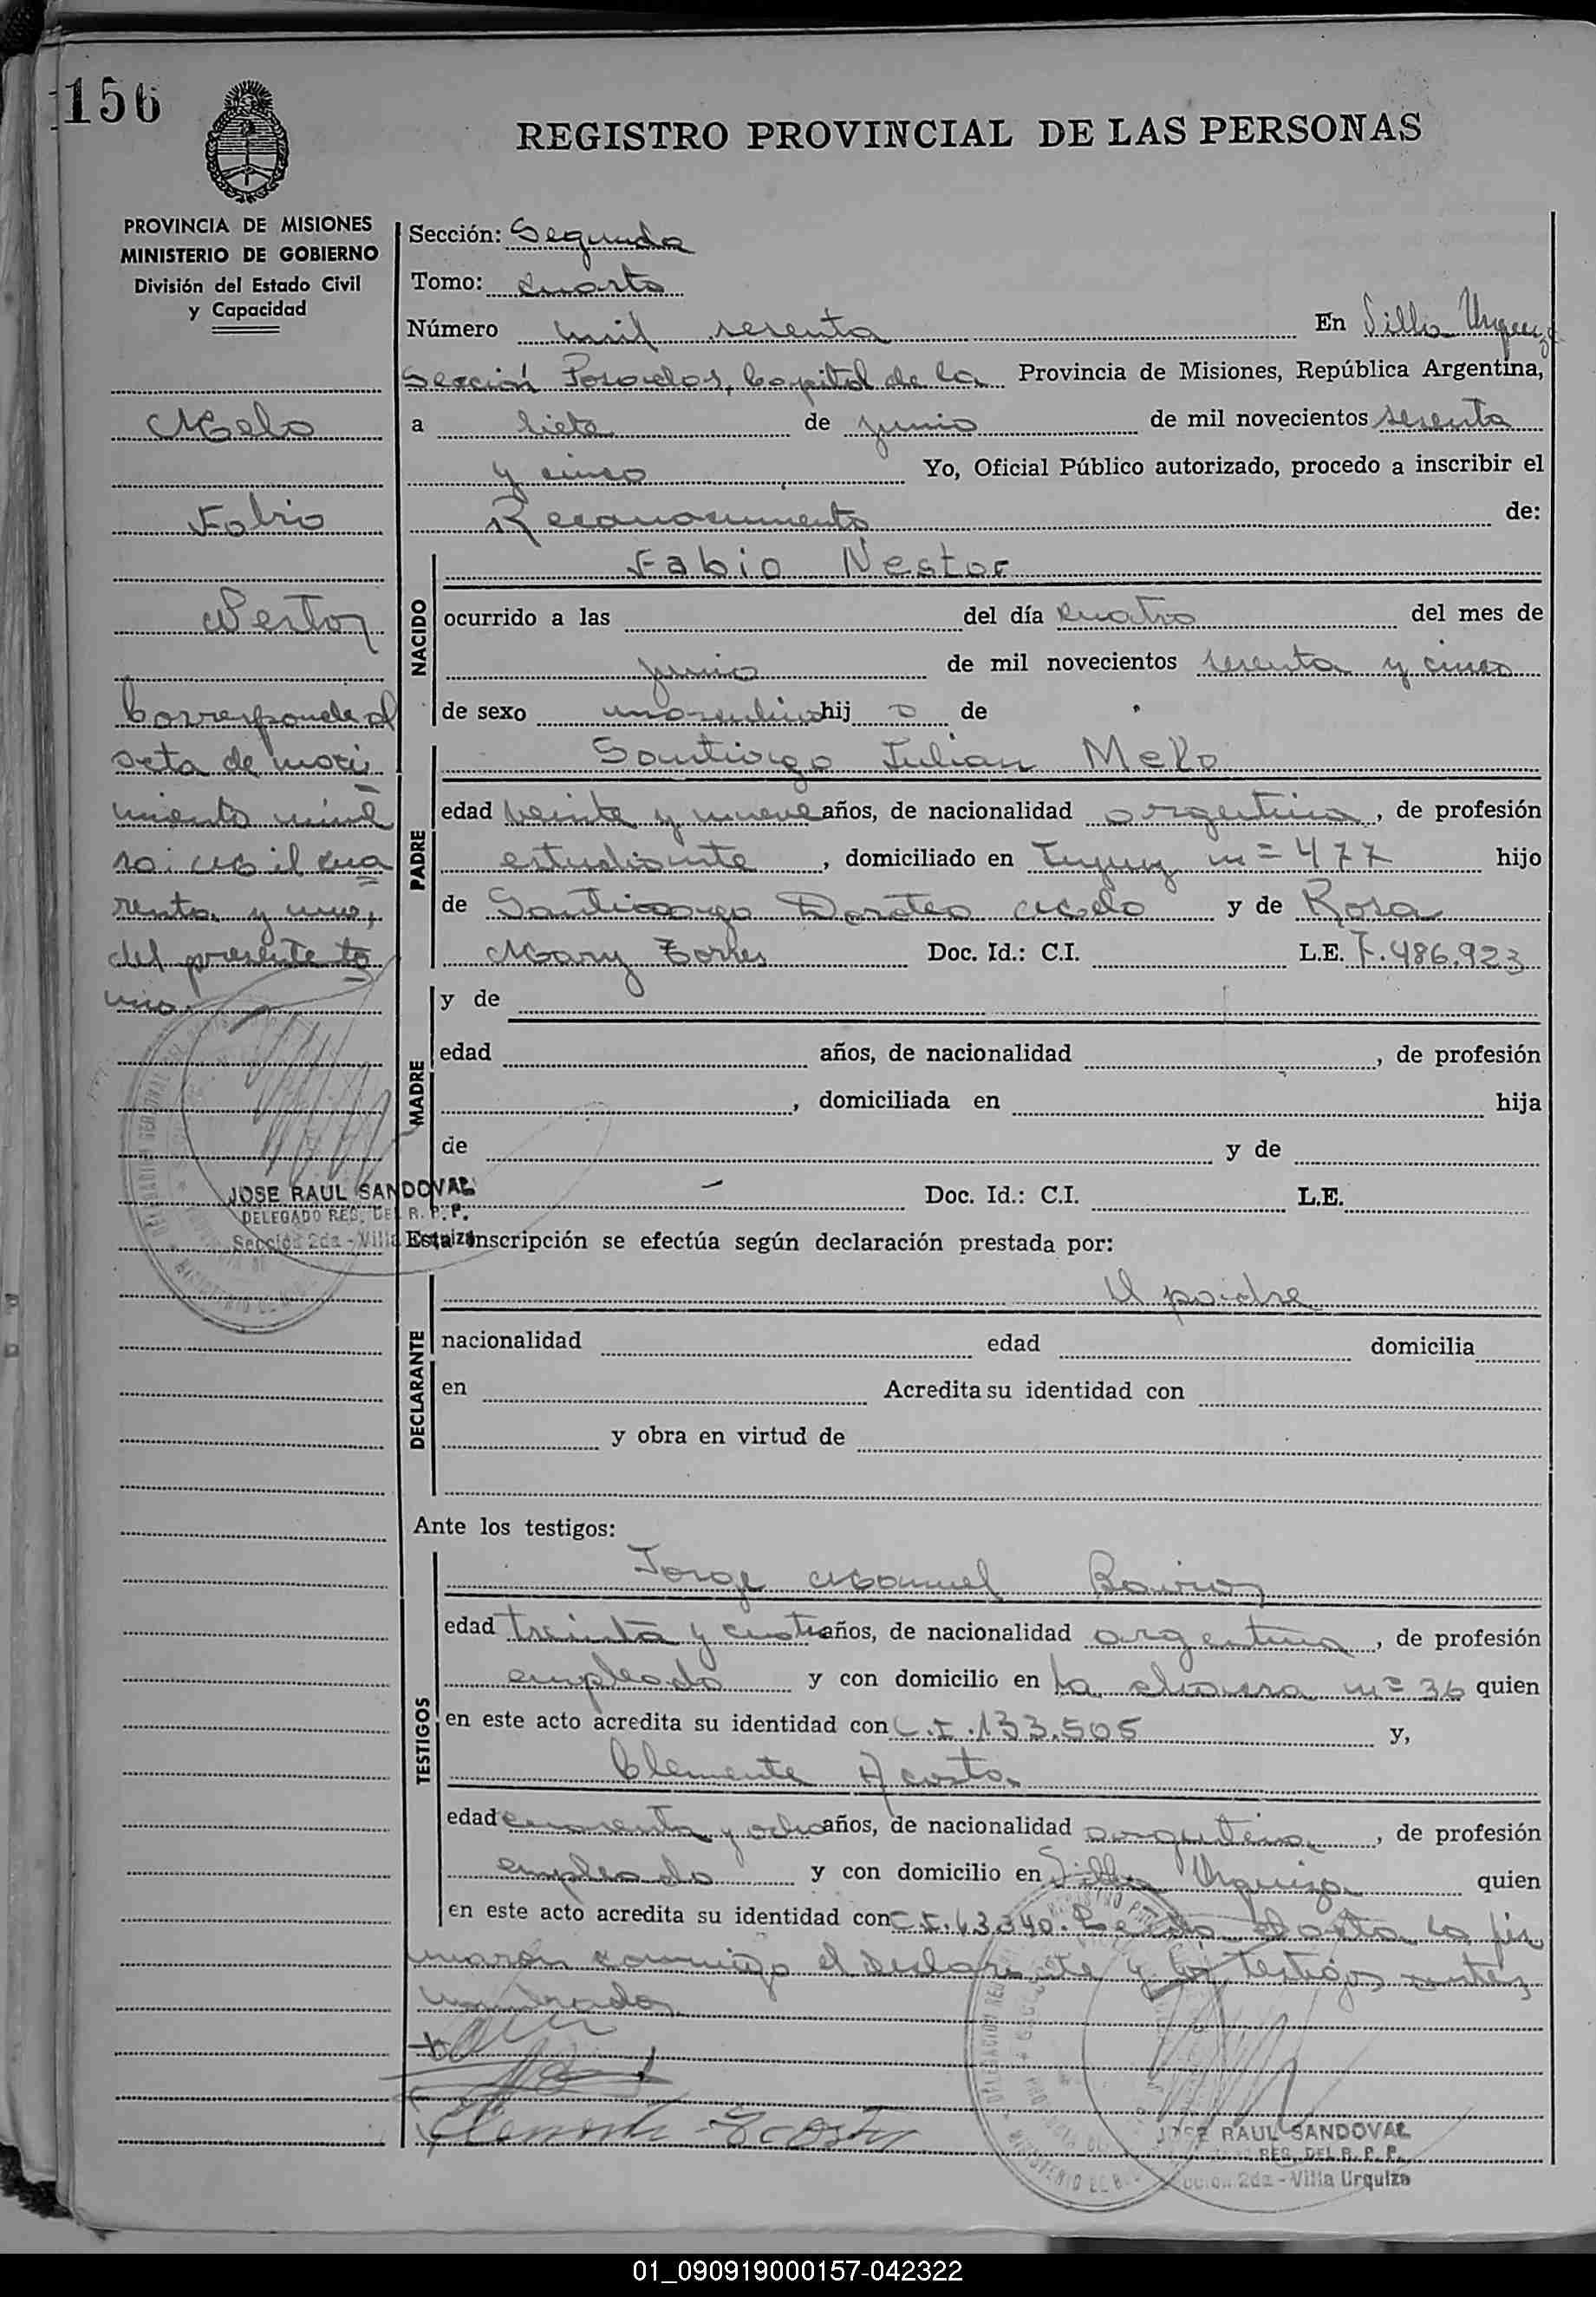 156
REGISTRO PROVINCIAL DE LAS PERSONAS
PROVINCIA DE MISIONES
MINISTERIO DE GOBIERNO
División del Estado Civil
y Capacidad
Melo
Fabio
Nestor
Corresponde al
acta de naci
miento núme
ro: mil cua
renta y uno,
del presente to
mo.
JOSE RAUL SANDOVAL
DELEGADO REG. DEL R. P. P.
Sección 2da - Villa Urquiza
Sección: Segunda
Tomo: cuarto
Número mil sesenta En Villa Urquiza
Sección Posadas, Capital de la Provincia de Misiones, República Argentina,
a siete de junio de mil novecientos sesenta
y cinco Yo, Oficial Público autorizado, procedo a inscribir el
Reconocimiento de:
NACIDO
Fabio Nestor
ocurrido a las del día cuatro del mes de
junio de mil novecientos sesenta y cinco
de sexo masculino hij o de
PADRE
Santiago Julian Melo
edad veinte y nueve años, de nacionalidad argentina, de profesión
estudiante, domiciliado en Jujuy nº 477 hijo
de Santiago Doroteo Melo y de Rosa
Mary Torres Doc. Id.: C.I. L.E. 7.486.923
MADRE
y de
edad años, de nacionalidad , de profesión
, domiciliada en hija
de y de
Doc. Id.: C.I. L.E.
Esta inscripción se efectúa según declaración prestada por:
DECLARANTE
El padre
nacionalidad edad domicilia
en Acredita su identidad con
y obra en virtud de
Ante los testigos:
TESTIGOS
Jorge Manuel
edad treinta y cuatro años, de nacionalidad argentina, de profesión
empleado y con domicilio en nº 36 quien
en este acto acredita su identidad con C.I. 133.505 y,
Clemente Acosta
edad cuarenta y ocho años, de nacionalidad argentina, de profesión
empleado y con domicilio en Villa Urquiza quien
en este acto acredita su identidad con C.I. 63.340. Leida el acta la fir
maron conmigo el declarante y los testigos antes
nombrados.
Clemente Acosta
JOSE RAUL SANDOVAL
REG. DEL R. P. P.
2da - Villa Urquiza
01_090919000157-042322